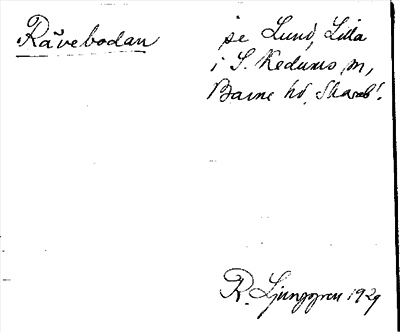 Rävebodan
se Lund, Lilla
i S. Kedums sn,
Barne hd, Skarab!.
R. Ljunggren 1929